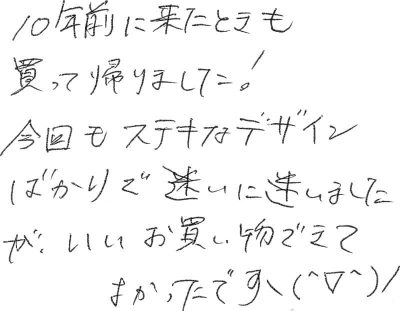 10年前に来たときも
買って帰りました!
今回もステキなデザイン
ばかりで迷いに迷いました
が、いいお買い物できて
よかったです\(^▽^)/